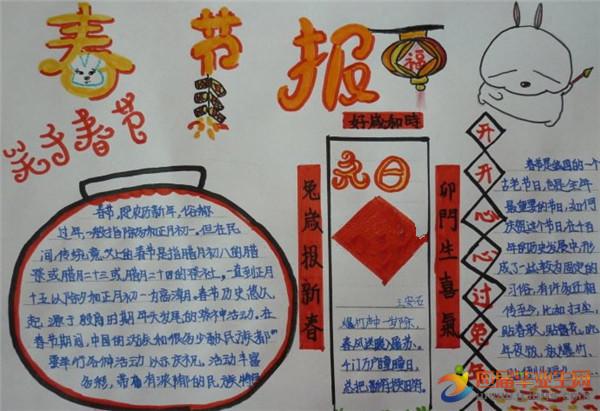 春节报
福
关于春节
春节,即农历新年,俗称
过年,一般指除夕和正月初一。但在民
间传统意义上的春节是指腊月初八的腊
祭或腊月二十三或腊月二十四的祭社。一直到正月
十五以除夕和正月初一为高潮日。春节历史悠久
起源于殷商时期年头岁尾的祭神活动。在
春节期间,中国的汉族和很多少数民族都
要举行各种活动以示庆祝。活动丰富
多彩,带有浓郁的民族特
好歳和時
兔歳报新春
卯門生喜氣
元日
王安石
爆竹声中一岁除,
春风送暖入屠苏。
千门万户曈曈日,
总把新桃换旧符
开开心心过兔年
春节是我国的一个
古老节日,也是全年
最重要的节日,如何
庆祝这个节日,在千百
年的历史发展中,形
成了一些较为固定的
习俗,有许多还相
传至今,比如扫尘,
贴春联,贴窗花,吃
年夜饭,放爆竹、
应届毕业生网